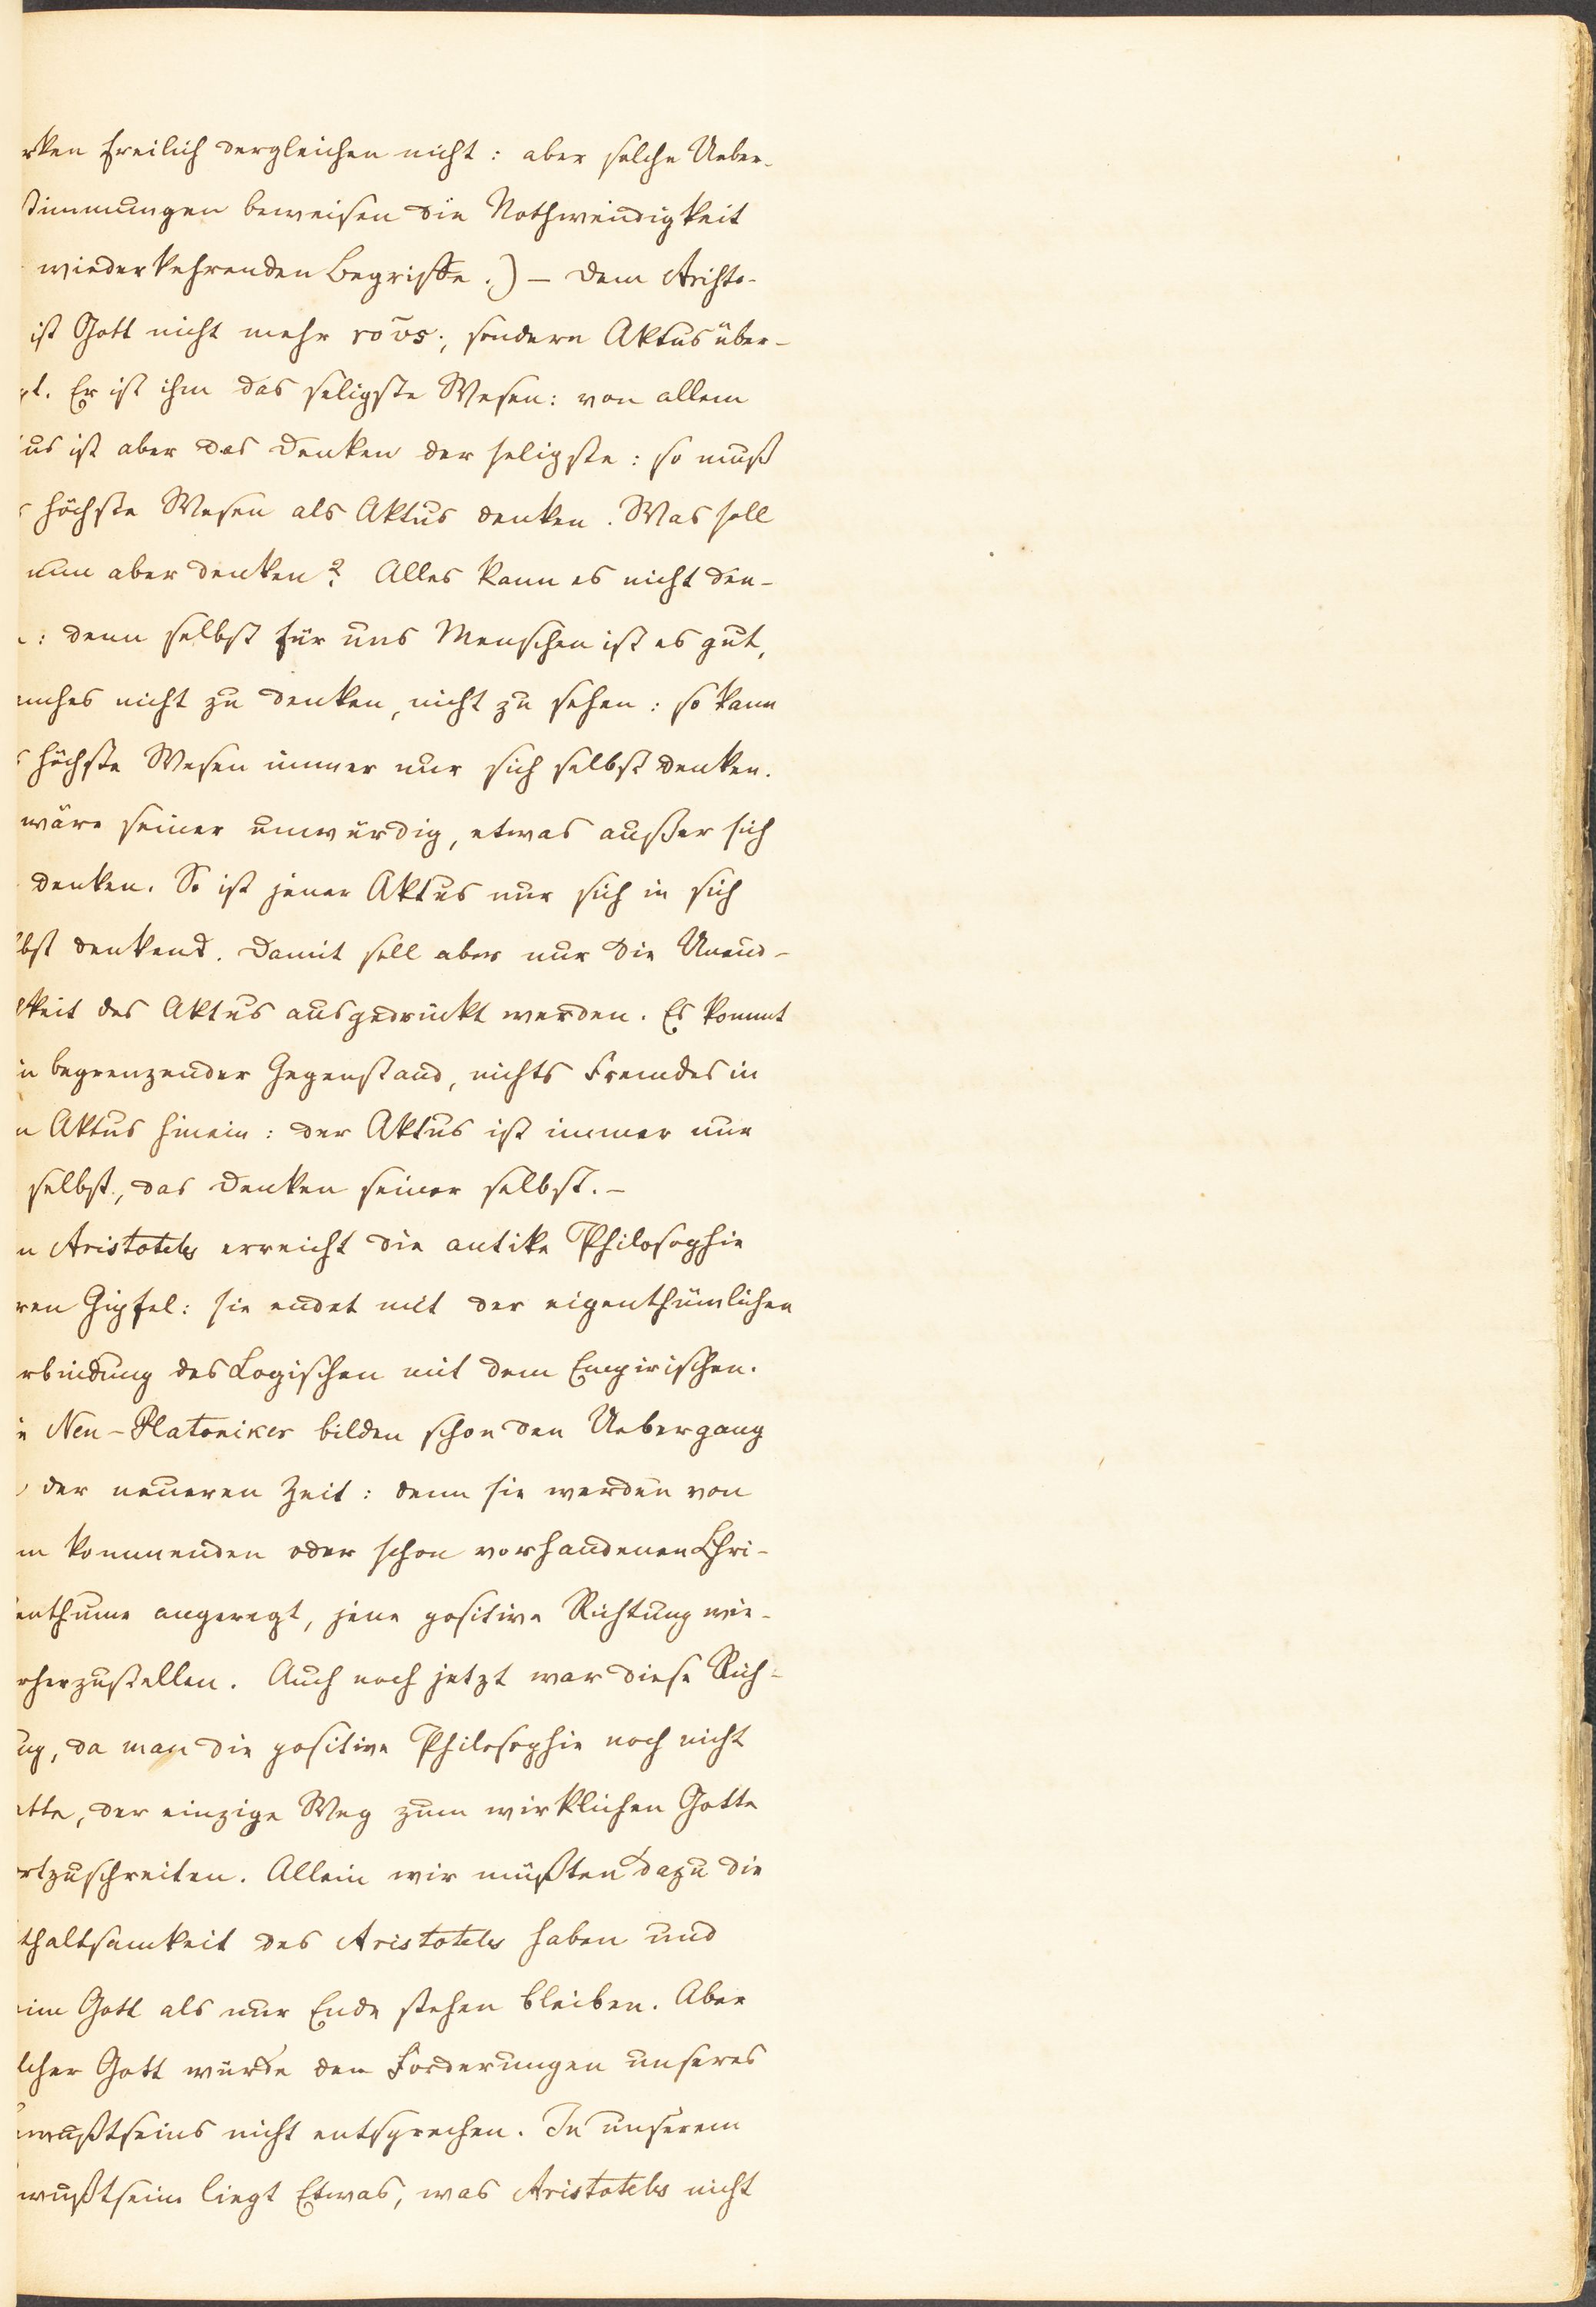 rken freilich dergleichen nicht: aber solche Ueber-
stimmungen beweisen die Nothwendigkeit
wiederkehrenden Begriffe.) – Dem Aristo-
ist Gott nicht mehr νοῦς, sondern Aktus über-
pt. Er ist ihm das seligste Wesen: von allem
us ist aber das Denken der seligste: so muß
s höchste Wesen als Aktus denken. Was soll
nun aber denken? Alles kann es nicht den-
n: denn selbst für uns Menschen ist es gut,
nches nicht zu denken, nicht zu sehen: so kann
s höchste Wesen immer nur sich selbst denken.
wäre seiner unwürdig, etwas außer sich
denken. So ist jener Aktus nur sich in sich
lbst denkend. Damit soll aber nur die Unend-
keit des Aktus ausgedrückt werden. Es kommt
in begrenzender Gegenstand, nichts Fremdes in
n Aktus hinein: der Aktus ist immer nur
selbst, das Denken seiner selbst. –
n Aristoteles erreicht die antike Philosophie
ren Gipfel: sie endet mit der eigenthümlichen
rbindung des Logischen mit dem Empirischen.
e Neu-Platoniker bilden schon den Uebergang
der neueren Zeit: denn sie werden von
m kommenden oder schon vorhandenen Chri-
enthume angeregt, jene positive Richtung wie-
rherzustellen. Auch noch jetzt war diese Rich-
ng, da man die positive Philosophie noch nicht
atte, der einzige Weg zum wirklichen Gotte
ortzuschreiten. Allein wir müßten dazu die
thaltsamkeit des Aristoteles haben und
eim Gott als nur Ende stehen bleiben. Aber
lcher Gott würde den Forderungen unseres
ewußtseins nicht entsprechen. In unserem
wußtsein liegt Etwas, was Aristoteles nicht